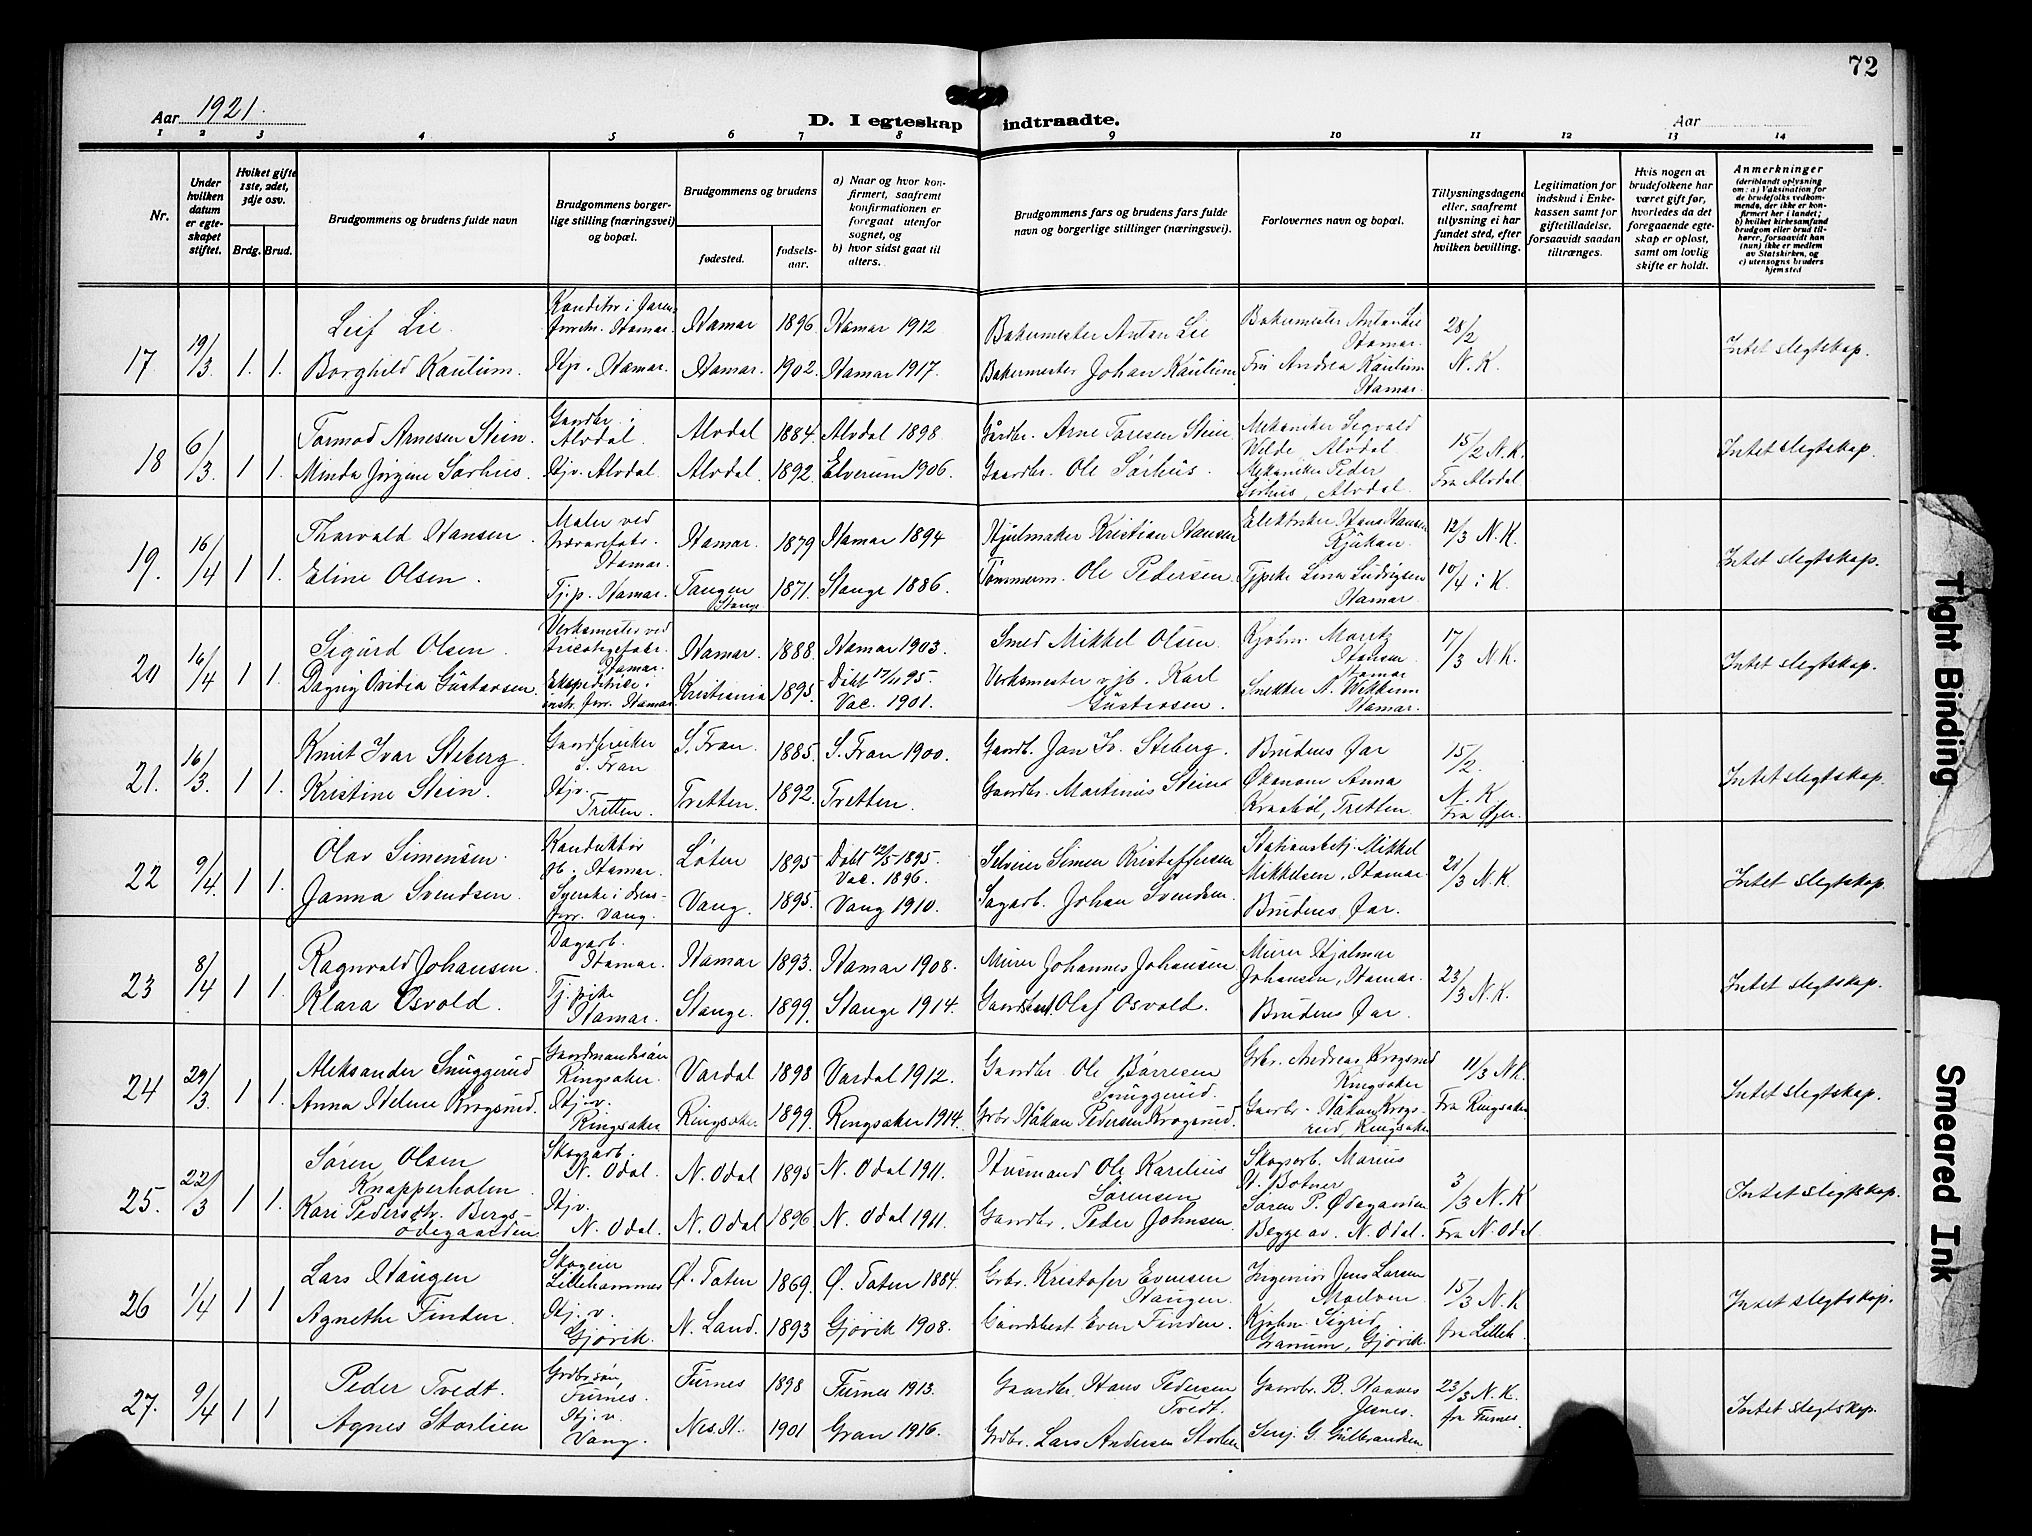 72
Aar 1921.
D. I egteskap indtraadte.
Aar
1 2 3 4 5 6 7 8 9 10 11 12 13 14
Nr.
Under hvilken datum er egteskapet stiftet.
Hviket gifte 1ste, 2det, 3dje osv.
Brdg. Brud.
Brudgommens og brudens fulde navn
Brudgommens borgerlige stilling (næringsvei) og bopæl.
Brudgommens og brudens
fødested.
fødselsaar.
a) Naar og hvor konfirmert, saafremt konfirmationen er foregaat utenfor sognet, og
b) hvor sidst gaat til alters.
Brudgommens fars og brudens fars fulde navn og borgerlige stillinger (næringsvei).
Forlovernes navn og bopæl.
Tillysningsdagene eller, saafremt tillysning ei har fundet sted, efter hvilken bevilling.
Legitimation for indskud i Enkekassen samt for giftetilladelse, forsaavidt saadan tiltrænges.
Hvis nogen av brudefolkene har været gift før, hvorledes da det foregaaende egteskap er opløst, samt om lovlig skifte er holdt.
Anmerkninger
(deriblandt oplysning om: a) Vaksination for de brudefolks vedkommende, der ikke er konfirmert her i landet; b) hvilket kirkesamfund brudgom eller brud tilhører, forsaavidt han (hun) ikke er medlem av Statskirken, og c) utensogns bruders hjemsted
17 19/3 1. 1.
Leif Lie. Konditor i Hamar. Hamar 1896 Hamar 1912 Bakermester Anton Lie Bakermester Anton Lie Hamar. 28/2
Borghild Kaulum. Hjv. Hamar. Hamar. 1902. Hamar 1917. Bakermester Johan Kaulum. Fru Andrea Kaulum Hamar. N. K. Intet slegtskap.
18 6/3 1 1.
Tormod Arnesen Stein. Gaardbr. i Alvdal. Alvdal 1884. Alvdal 1898. Gårdbr. Arne Toresen Stein Mekaniker Sigvald Wilde, Alvdal. 15/2 N.K.
Minda Jørgine Sørhus. Hjv. Alvdal. Alvdal 1892. Elverum 1906. Gaardbr. Ole Sørhus. Mekaniker Peder Sørhus, Alvdal. Fra Alvdal Intet slegtskap.
19. 16/4 1 1.
Thorvald Hansen. Maler ved trævarefabr. Hamar. Hamar. 1879 Hamar 1894 Hjulmaker Kristian Hansen Elektriker Hans Hansen Rjukan. 12/3 N.K.
Eline Olsen. Tj.p. Hamar. Tangen Stange 1871. Stange 1886. Tømmerm. Ole Pedersen. Tjpike Lina Ludvigsen Hamar. 10/4 i K. Intet slegtskap.
20 16/4 1 1.
Sigurd Olsen. Verksmester ved tricotagefabr. Hamar. Hamar. 1888. Hamar 1903. Smed Mikkel Olsen. Kjøbm. Moritz Hansen. Hamar 17/3 N K.
Dagny Ovidia Gustavsen. Ekspeditrice i forr. Hamar. Kristiania 1895. Døbt 17/11 95. Vac. 1901. Verksmester v.jb. Karl Gustavsen. Snekker N. Wekkum Hamar. Intet slegtskap.
21. 16/3. 1 1.
Knut Ivar Steberg. Gaardforpakter S. Fron S. Fron. 1885. S. Fron 1900. Gaardb. Jon Iv. Steberg. Brudens far 15/2.
Kristine Stein. Hjv. Tretten. Tretten. 1892. Tretten. Gaardbr. Martinus Stein Økonom Anna Kraabøl, Tretten. N. K. Fra Øyer. Intet slegtskap.
22 9/4. 1 1.
Olav Simensen. Konduktør jb. Hamar. Løten 1895 Døbt 12/5-1895. Vac. 1896. Selveier Simen Kristoffersen Stationsbetj. Mikkel Mikkelsen, Hamar. 21/3 N.K.
Janna Svendsen. Syerske i forr. Vang. Vang. 1895. Vang 1910. Sagarb. Johan Svendsen. Brudens far. Intet slegtskap.
23 8/4 1 1.
Ragnvald Johansen. Dagarb. Hamar. Hamar 1893. Hamar 1908. Murer Johannes Johansen Murer Hjalmar Johansen, Hamar. 23/3 N.K.
Klara Osvold. Tj.pike Hamar. Stange. 1899. Stange 1914. Gaardbest. Olaf Osvold. Brudens far. Intet slegtskap.
24 29/3. 1 1.
Aleksander Snuggerud Gaardmandssøn Ringsaker. Vardal 1898 Vardal 1912. Gaardbr. Ole Børresen Snuggerud. Grbr. Andreas Krogsrud Ringsaker 11/3 N.K.
Anna Helene Krogsrud. Hj.v. Ringsaker Ringsaker 1899. Ringsaker 1914. Grbr Håkon Pedersen Krogsrud. Gaardbr. Håkon Krogsrud, Ringsaker Fra Ringsaker Intet slegtskap.
25. 22/3 1 1.
Søren Olsen Knapperholen. Skogsarb. N. Odal. N. Odal 1895 N. Odal 1911. Husmand Ole Karelius Sørensen Skogsarb. Marius H. Botner 3/3 N.K
Kari Pedersdtr. Bergs-ødegaarden Hjv. N. Odal. N. Odal 1896. N. Odal 1911. Gaardbr. Peder Johnsen. Søren P. Ødegaarden Begge av N. Odal. Fra N. Odal. Intet slegtskap.
26 1/4 1 1
Lars Haugen Skogeier Lillehammer Ø. Toten 1869. Ø. Toten 1884. Grbr. Kristofer Evensen Haugen. Ingeniør Jens Larsen Moelven. 15/3 N. K
Agnethe Finden. Hj.v. Gjøvik. N. Land. 1893 Gjøvik 1908. Gaardsbest Even Finden. Kjøbm. Sigrid Granum, Gjøvik. fra Lilleh. Intet slegtskap.
27. 9/4 1 1
Peder Tvedt. Grdbrsøn, Furnes. Furnes 1898 Furnes 1913. Gaardbr. Hans Pedersen Tvedt. Gaardbr. B. Haaves Jesnes. 23/3 N.K.
Agnes Storlien Hj.v. Vang. Nes H. 1901 Gran 1916. Grdbr. Lars Andersen Storlien Serj. G. Gulbrandsen fra Furnes. Intet slegtskap.
Tight Binding
Smeared Ink